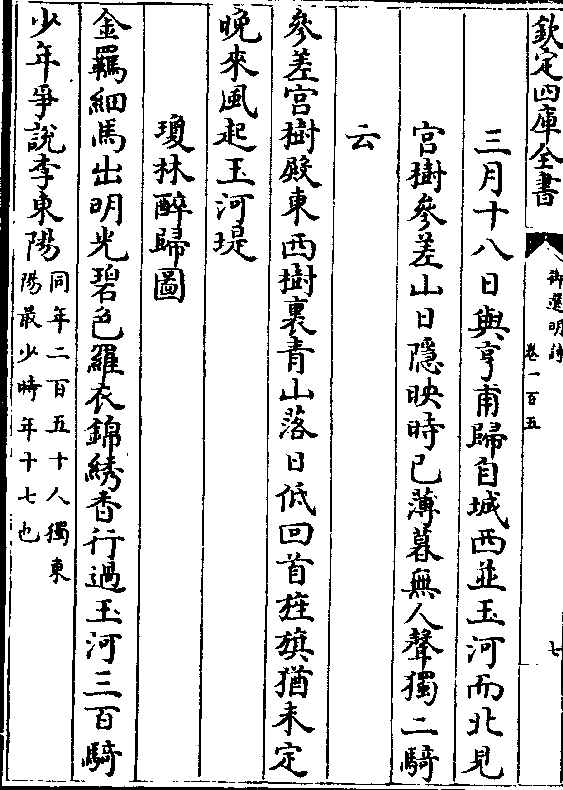 欽定四庫全書
御選明詩
卷一百五
七
三月十八日與亨甫歸自城西並玉河而北見
宮樹參差山日隱映時已薄暮無人聲獨二騎
云
參差宮樹殿東西樹裏青山落日低回首旌旗猶未定
晚來風起玉河堤
瓊林醉歸圖
金羈細馬出明光碧色羅衣錦綉香行過玉河三百騎
少年爭說李東陽
同年二百五十人獨東
陽最少時年十七也